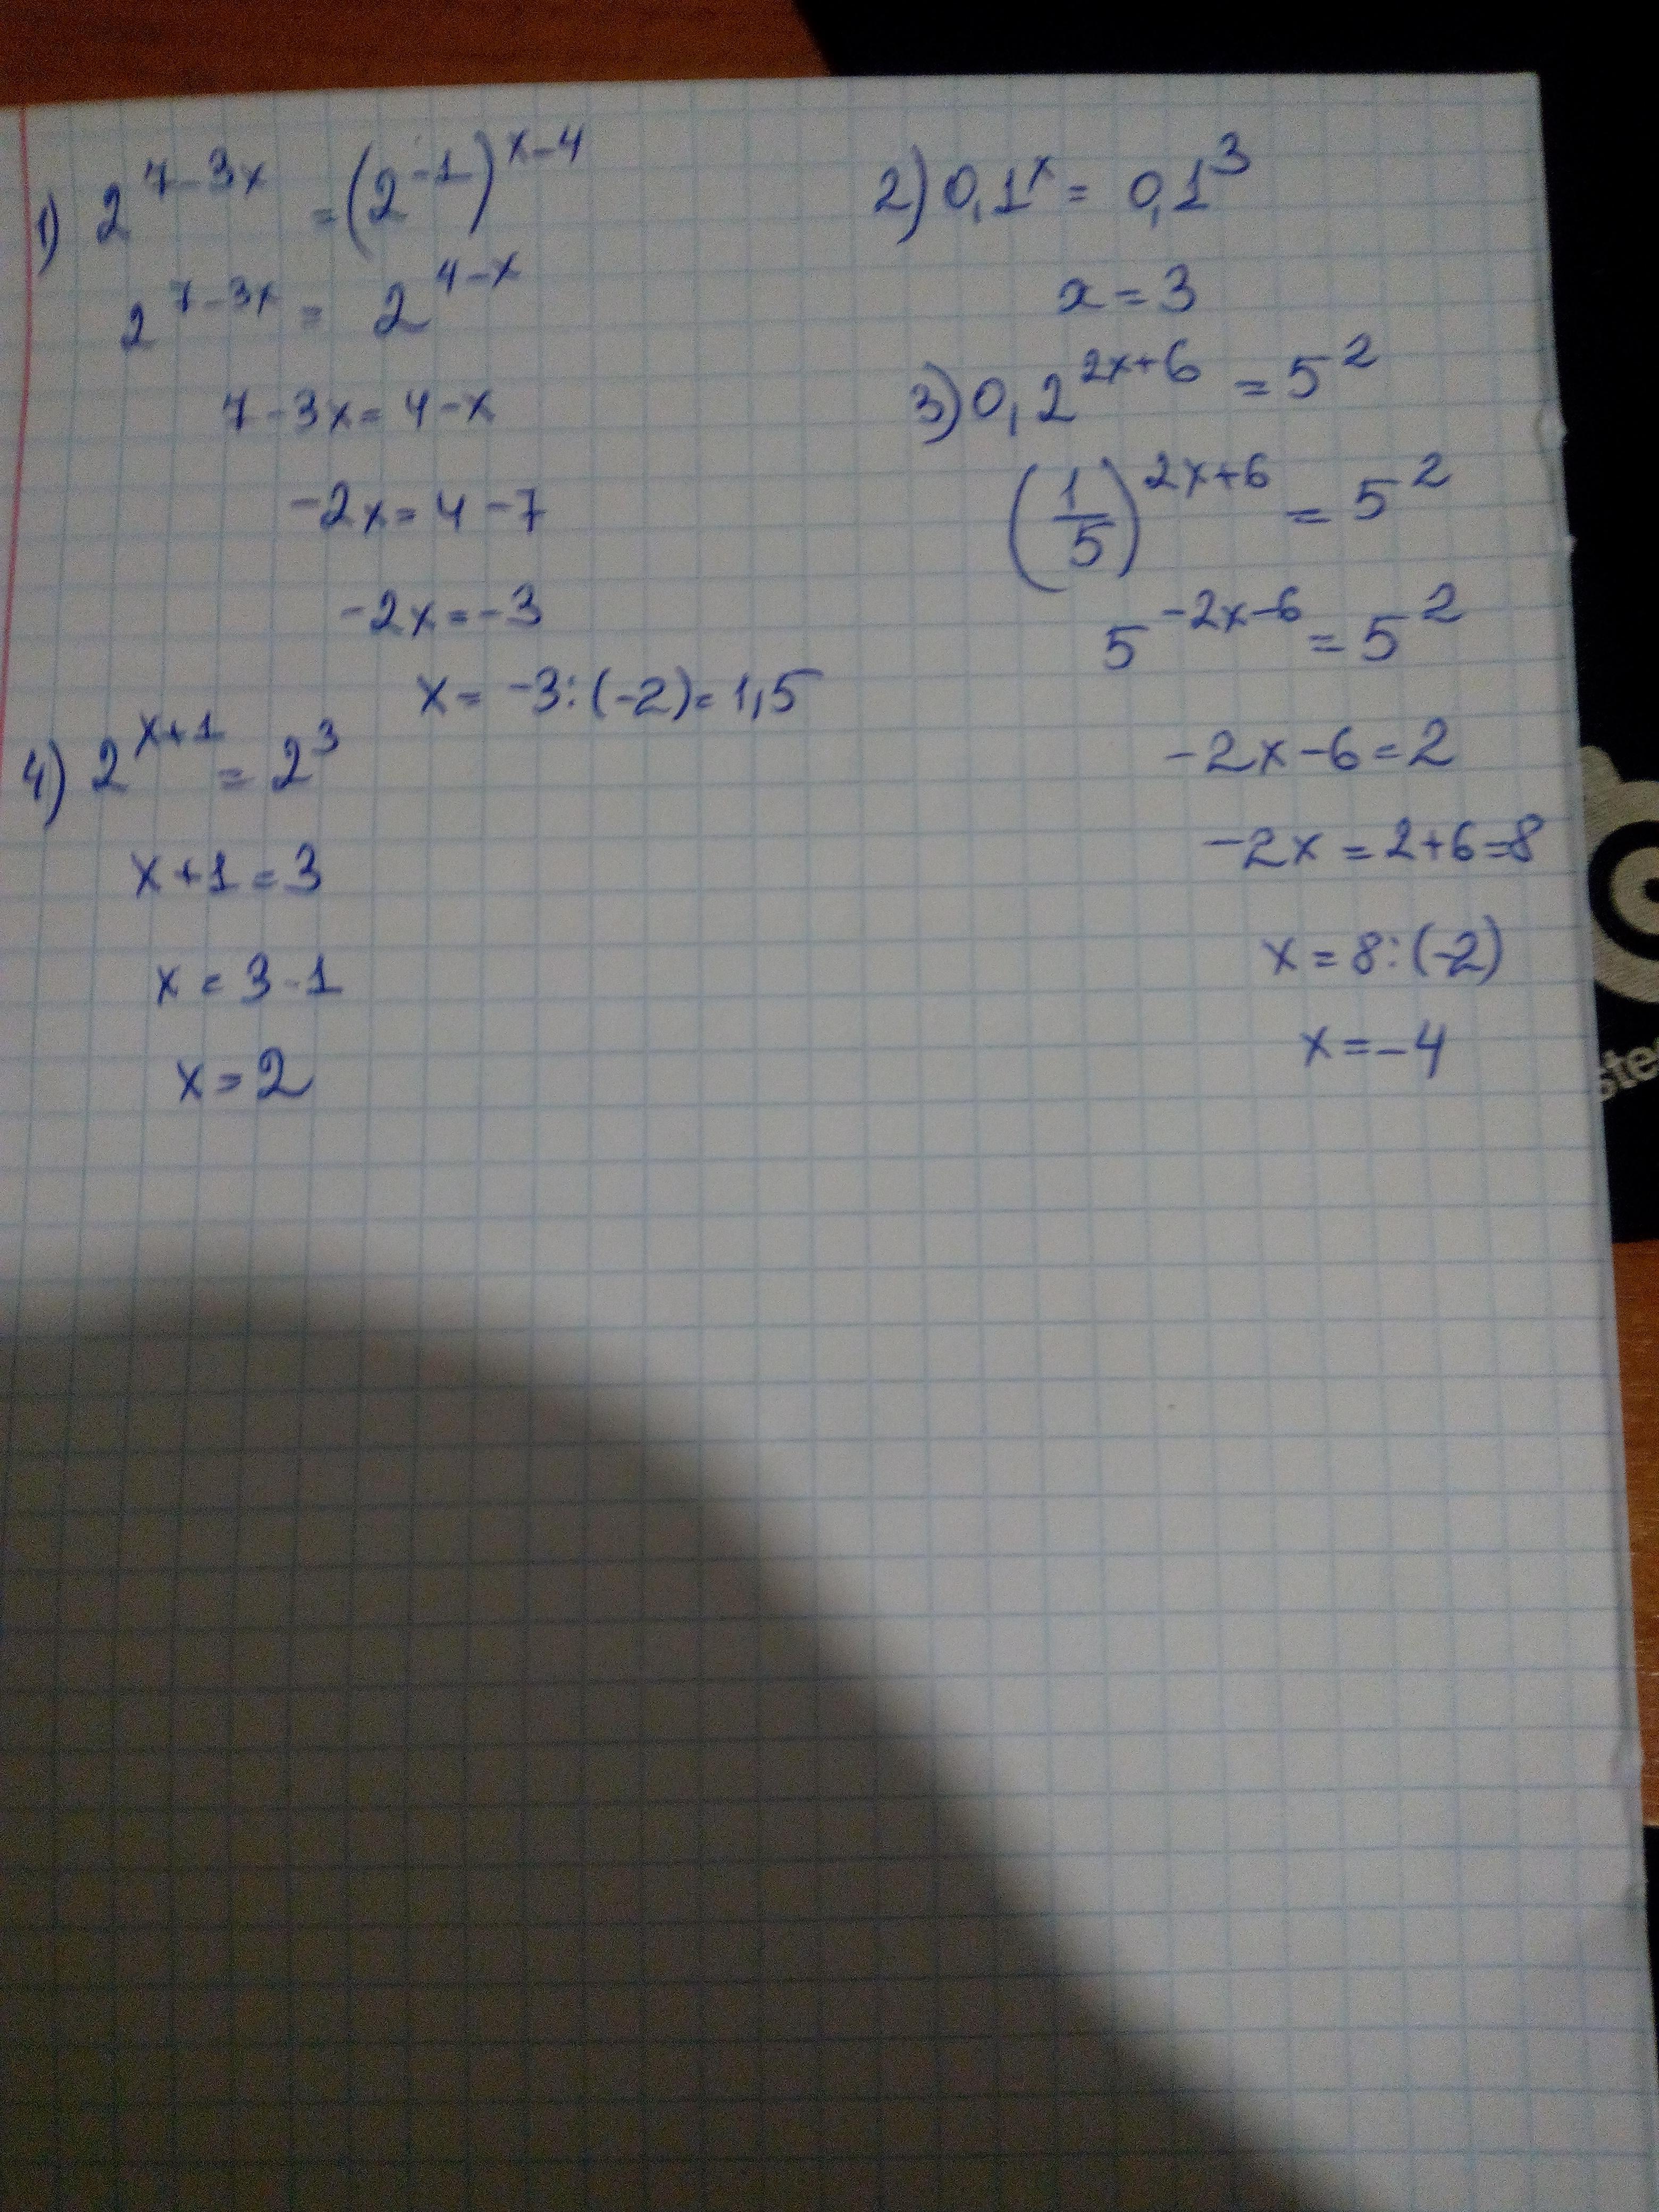 1) 2^{7-3x} = (2^{-1})^{x-4}
2^{7-3x} = 2^{4-x}
7-3x = 4-x
-2x = 4-7
-2x = -3
x = -3:(-2) = 1,5
4) 2^{x+1} = 2^3
x+1 = 3
x = 3-1
x = 2
2) 0,1^x = 0,1^3
x = 3
3) 0,2^{2x+6} = 5^2
(1/5)^{2x+6} = 5^2
5^{-2x-6} = 5^2
-2x-6 = 2
-2x = 2+6 = 8
x = 8:(-2)
x = -4